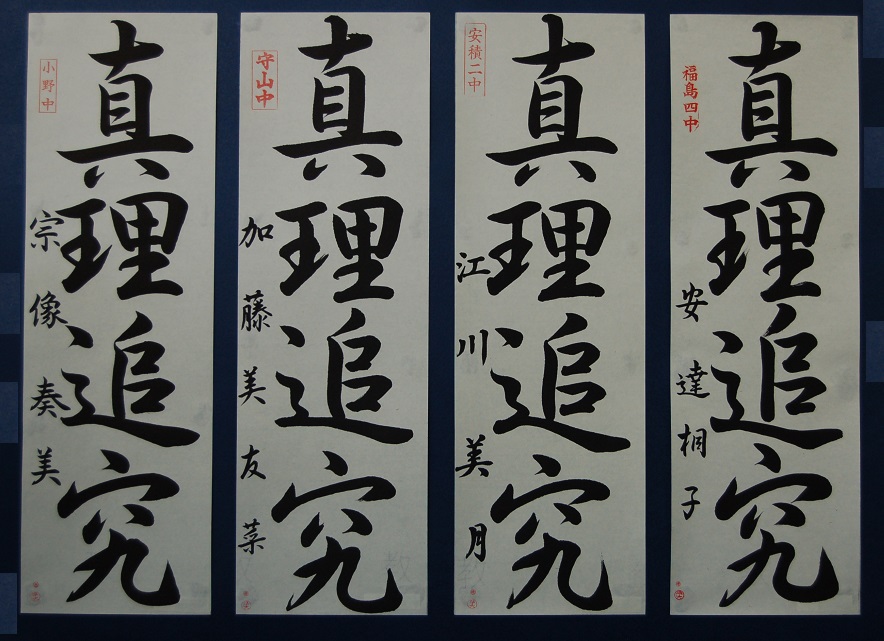 福島四中
真理追究
安達相子
安積二中
真理追究
江川美月
守山中
真理追究
加藤美友菜
小野中
真理追究
宗像奏美